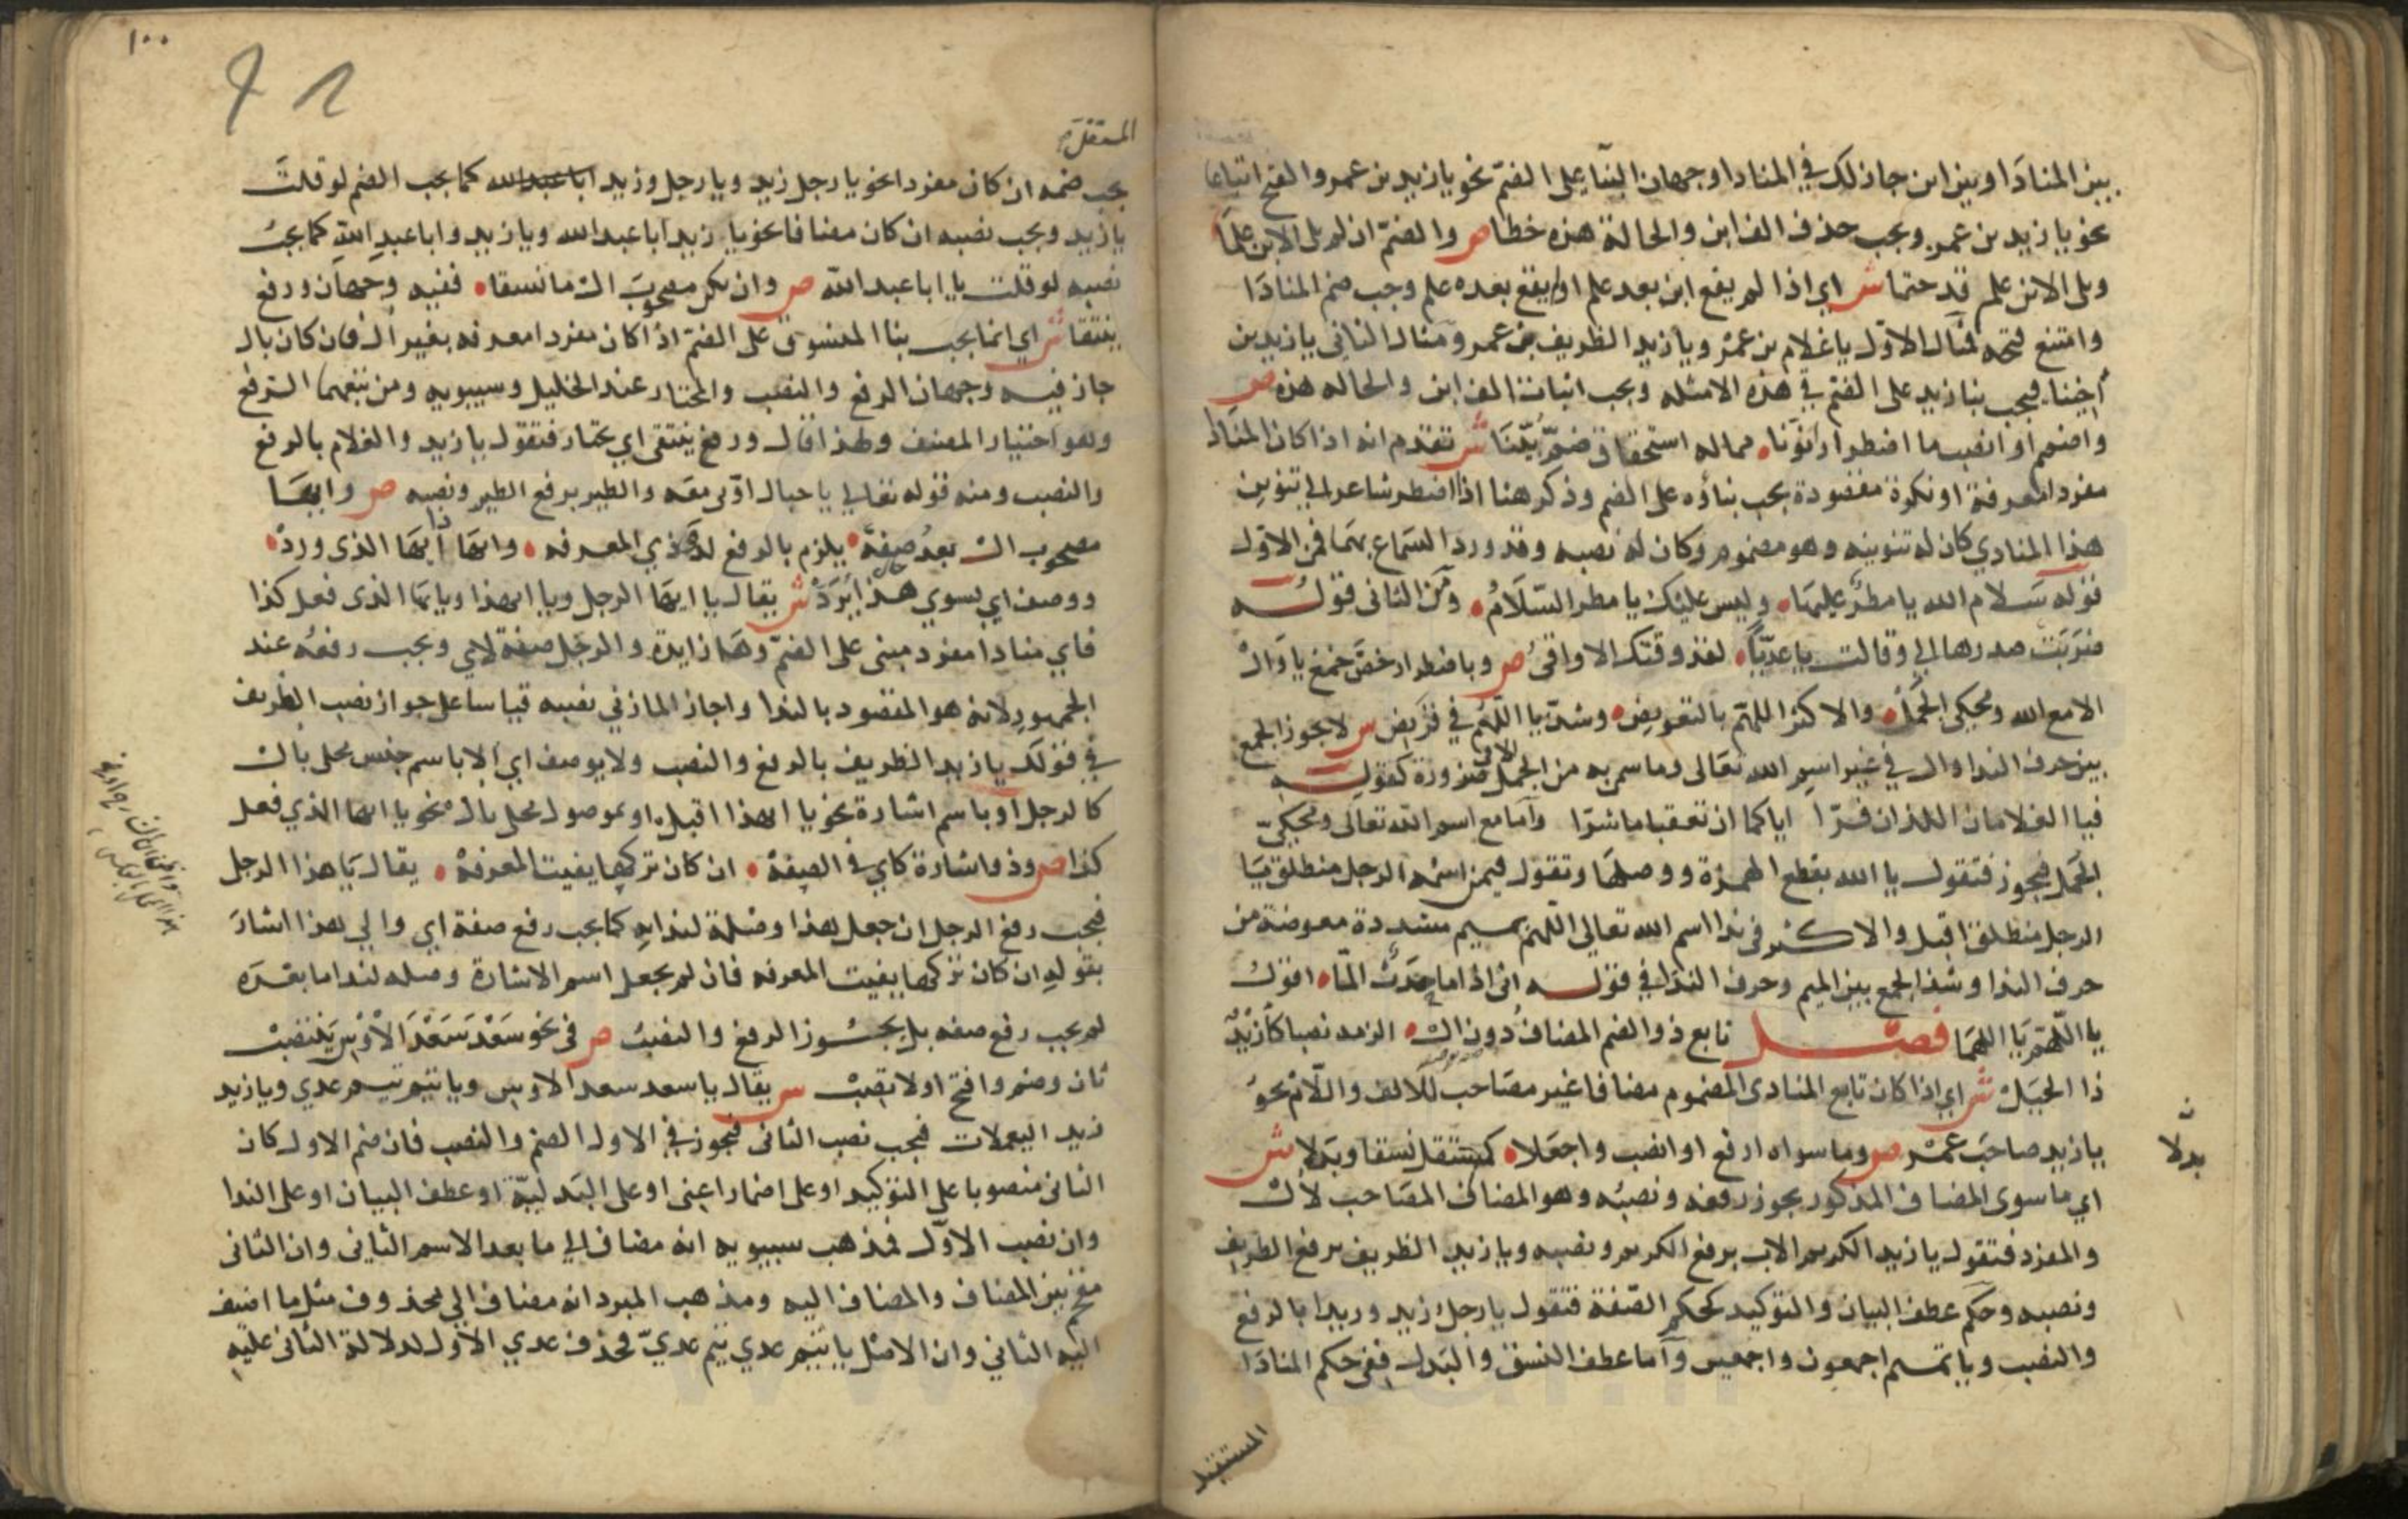 بين المنادا وبين ابن جاز لك في المنادا وجهان البنا على الضم نحو يا زيد بن عمرو والفتح اتباعا
نحو يا زيد بن عمرو ويجب حذف الف ابن والحالة هذه خطا ص والضم ان لم يل الابن علما
ويل الابن علم قد حتما ش اي اذا لم يقع ابن بعد علم او لم يقع بعده علم وجب ضم المنادا
وامتنع فتحه فمثال الاول يا غلام بن عمرو ويا زيد الظريف بن عمرو ومثال الثاني يا زيد بن
اخينا فيجب بنا زيد على الضم في هذه الامثله ويجب اثبات الف ابن والحاله هذه ص
واضمم او انصب ما اضطرارا نونا مما له استحقاق ضم بينا ش تقدم انه اذا كان المنادا
مفردا معرفة او نكرة مقصودة يجب بناؤه على الضم وذكر هنا اذا اضطر شاعر الى تنوين
هذا المنادي كان له تنوينه وهو مضموم وكان له نصبه وقد ورد السماع بهما فمن الاول
قوله سلام الله يا مطر عليها وليس عليك يا مطر السلام ومن الثاني قوله
ضربت صدرها الي وقالت يا عديا لقد وقتك الاواقي ص وباضطرار خص جمع يا وال
الا مع الله ومحكي الجمل والاكثر اللهم بالتعويض وشذ يا اللهم في قريض س لا يجوز الجمع
بين حرف الندا وال في غير اسم الله تعالى وما سمي به من الجمل الا في ضرورة كقوله
فيا الغلامان اللذان فرا اياكما ان تعقبا ما شرا واما مع اسم الله تعالى ومحكي
الجمل فيجوز فتقول يا الله بقطع الهمزة ووصلها وتقول فيمن اسمه الرجل منطلق يا
الرجل منطلق اقبل والاكثر في ندا اسم الله تعالي اللهم بميم مشددة معوضة من
حرف الندا وشذ الجمع بين الميم وحرف الندا في قوله اني اذا ما حدث الما اقول
يا اللهم يا اللهما فصل تابع ذو الضم المضاف دون ال الزمه نصبا كازيد
ذا الحيل ش اي اذا كان تابع المنادى المضموم مضافا غير مصاحب للالف واللام نحو
يا زيد صاحب عمرو ص وما سواه ارفع او انصب واجعلا كمستقل نسقا وبدلا ش
ن
بدلا
اي ما سوى المضاف المذكور يجوز رفعه ونصبه وهو المضاف المصاحب لال
والمفرد فتقول يا زيد الكريم الاب برفع الكريم ونصبه ويا زيد الظريف برفع الظريف
ونصبه وحكم عطف البيان والتوكيد كحكم الصفة فتقول يا رجل زيد وزيدا بالرفع
والنصب ويا تميم اجمعون واجمعين واما عطف النسق والبدل ففي حكم المنادا
المستقل
١٠٠
المستقل
يجب ضمه ان كان مفردا نحو يا رجل زيد ويا رجل وزيد ابا عبد الله كما يجب الضم لو قلت
يا زيد ويجب نصبه ان كان مضافا نحو يا زيد ابا عبد الله ويا زيد وابا عبد الله كما يجب
نصبه لو قلت يا ابا عبد الله ص وان يكن مصحوب ال ما نسقا ففيه وجهان ورفع
ينتقا ش اي انما يجب بنا المنسوق على الضم اذا كان مفردا معرفه بغير ال فان كان بال
جاز فيه وجهان الرفع والنصب والمختار عند الخليل وسيبويه ومن تبعهما الرفع
وهو اختيار المصنف ولهذا قال ورفع ينتقى اي يختار فتقول يا زيد والغلام بالرفع
والنصب ومنه قوله تعالي يا جبال اوبي معه والطير برفع الطير ونصبه ص وايها
مصحوب ال بعد صفة يلزم بالرفع لدى ذي المعرفه وايها ذا ايها الذي ورد
ووصف اي بسوي هذا يرد ش يقال يا ايها الرجل ويا ايهذا ويا ايها الذي فعل كذا
فاي منادا مفرد مبنى على الضم وها زايدة والرجل صفة لاي ويجب رفعه عند
الجمهور لانه هو المقصود بالندا واجاز المازني نصبه قياسا على جواز نصب الظريف
في قولك يا زيد الظريف بالرفع والنصب ولا يوصف اي الا باسم جنس محلى بال
كالرجل او باسم اشارة نحو يا ايهذا اقبل او بموصول محلى بال نحو يا ايها الذي فعل
كذا ص وذو اشارة كاي في الصفة ان كان تركها يفيت المعرفة يقال يا هذا الرجل
فيجب رفع الرجل ان جعل هذا وصلة لندايه كما يجب رفع صفة اي والي هذا اشار
بقوله ان كان تركها يفيت المعرفه فان لم يجعل اسم الاشارة وصله لندا ما بعده
لم يجب رفع صفه بل يجوز الرفع والنصب ص في نحو سعد سعد الاوس ينتصب
ثان وضم وافتح اولا تصب س يقال يا سعد سعد الاوس ويا تيم تيم عدي ويا زيد
زيد اليعملات فيجب نصب الثاني فيجوز في الاول الضم والنصب فان ضم الاول كان
الثاني منصوبا على التوكيد او على اضمار اعني او على البدلية او عطف البيان او على الندا
وان نصب الاول فمذهب سيبويه انه مضاف الي ما بعد الاسم الثاني وان الثاني
مقحم بين المضاف والمضاف اليه ومذهب المبرد انه مضاف الي محذوف مثل ما اضيف
اليه الثاني وان الاصل يا تيم عدي تيم عدي فحذف عدي الاول لدلالة الثاني عليه